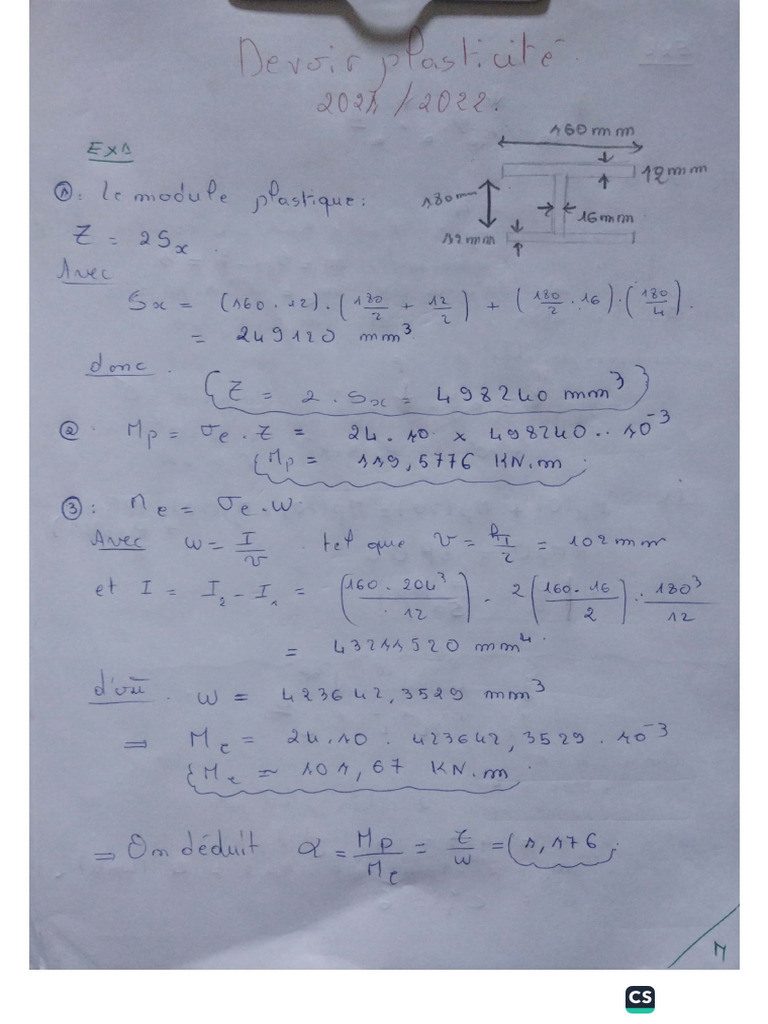 Devoir plasticité.
2021/2022.
Ex1
160mm
12mm
180mm
16mm
12mm
①: le module plastique:
Z = 2Sx.
Avec
Sx = (160.12).(180/2 + 12/2) + (180/2 . 16).(180/4).
= 249120 mm³
donc.
{Z = 2.Sx = 498240 mm³}
②. Mp = σe.Z = 24.10 x 498240..10⁻³
{Mp = 119,5776 KN.m
③: Me = σe.w.
Avec w = I/v tel que v = hI/2 = 102mm
et I = I₂ - I₁ = (160.204³/12) - 2(160-16/2).180³/12
= 43211520 mm⁴.
d'où. w = 423642,3529 mm³
⇒ Me = 24.10. 423642,3529.10⁻³
{Me = 101,67 KN.m
⇒ On déduit α = Mp/Me = Z/w = (1,176
1
CS